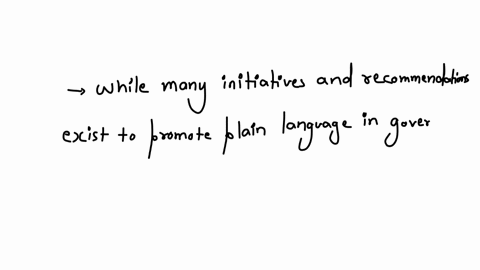 → while many initiatives and recommendations
exist to promote plain language in gover